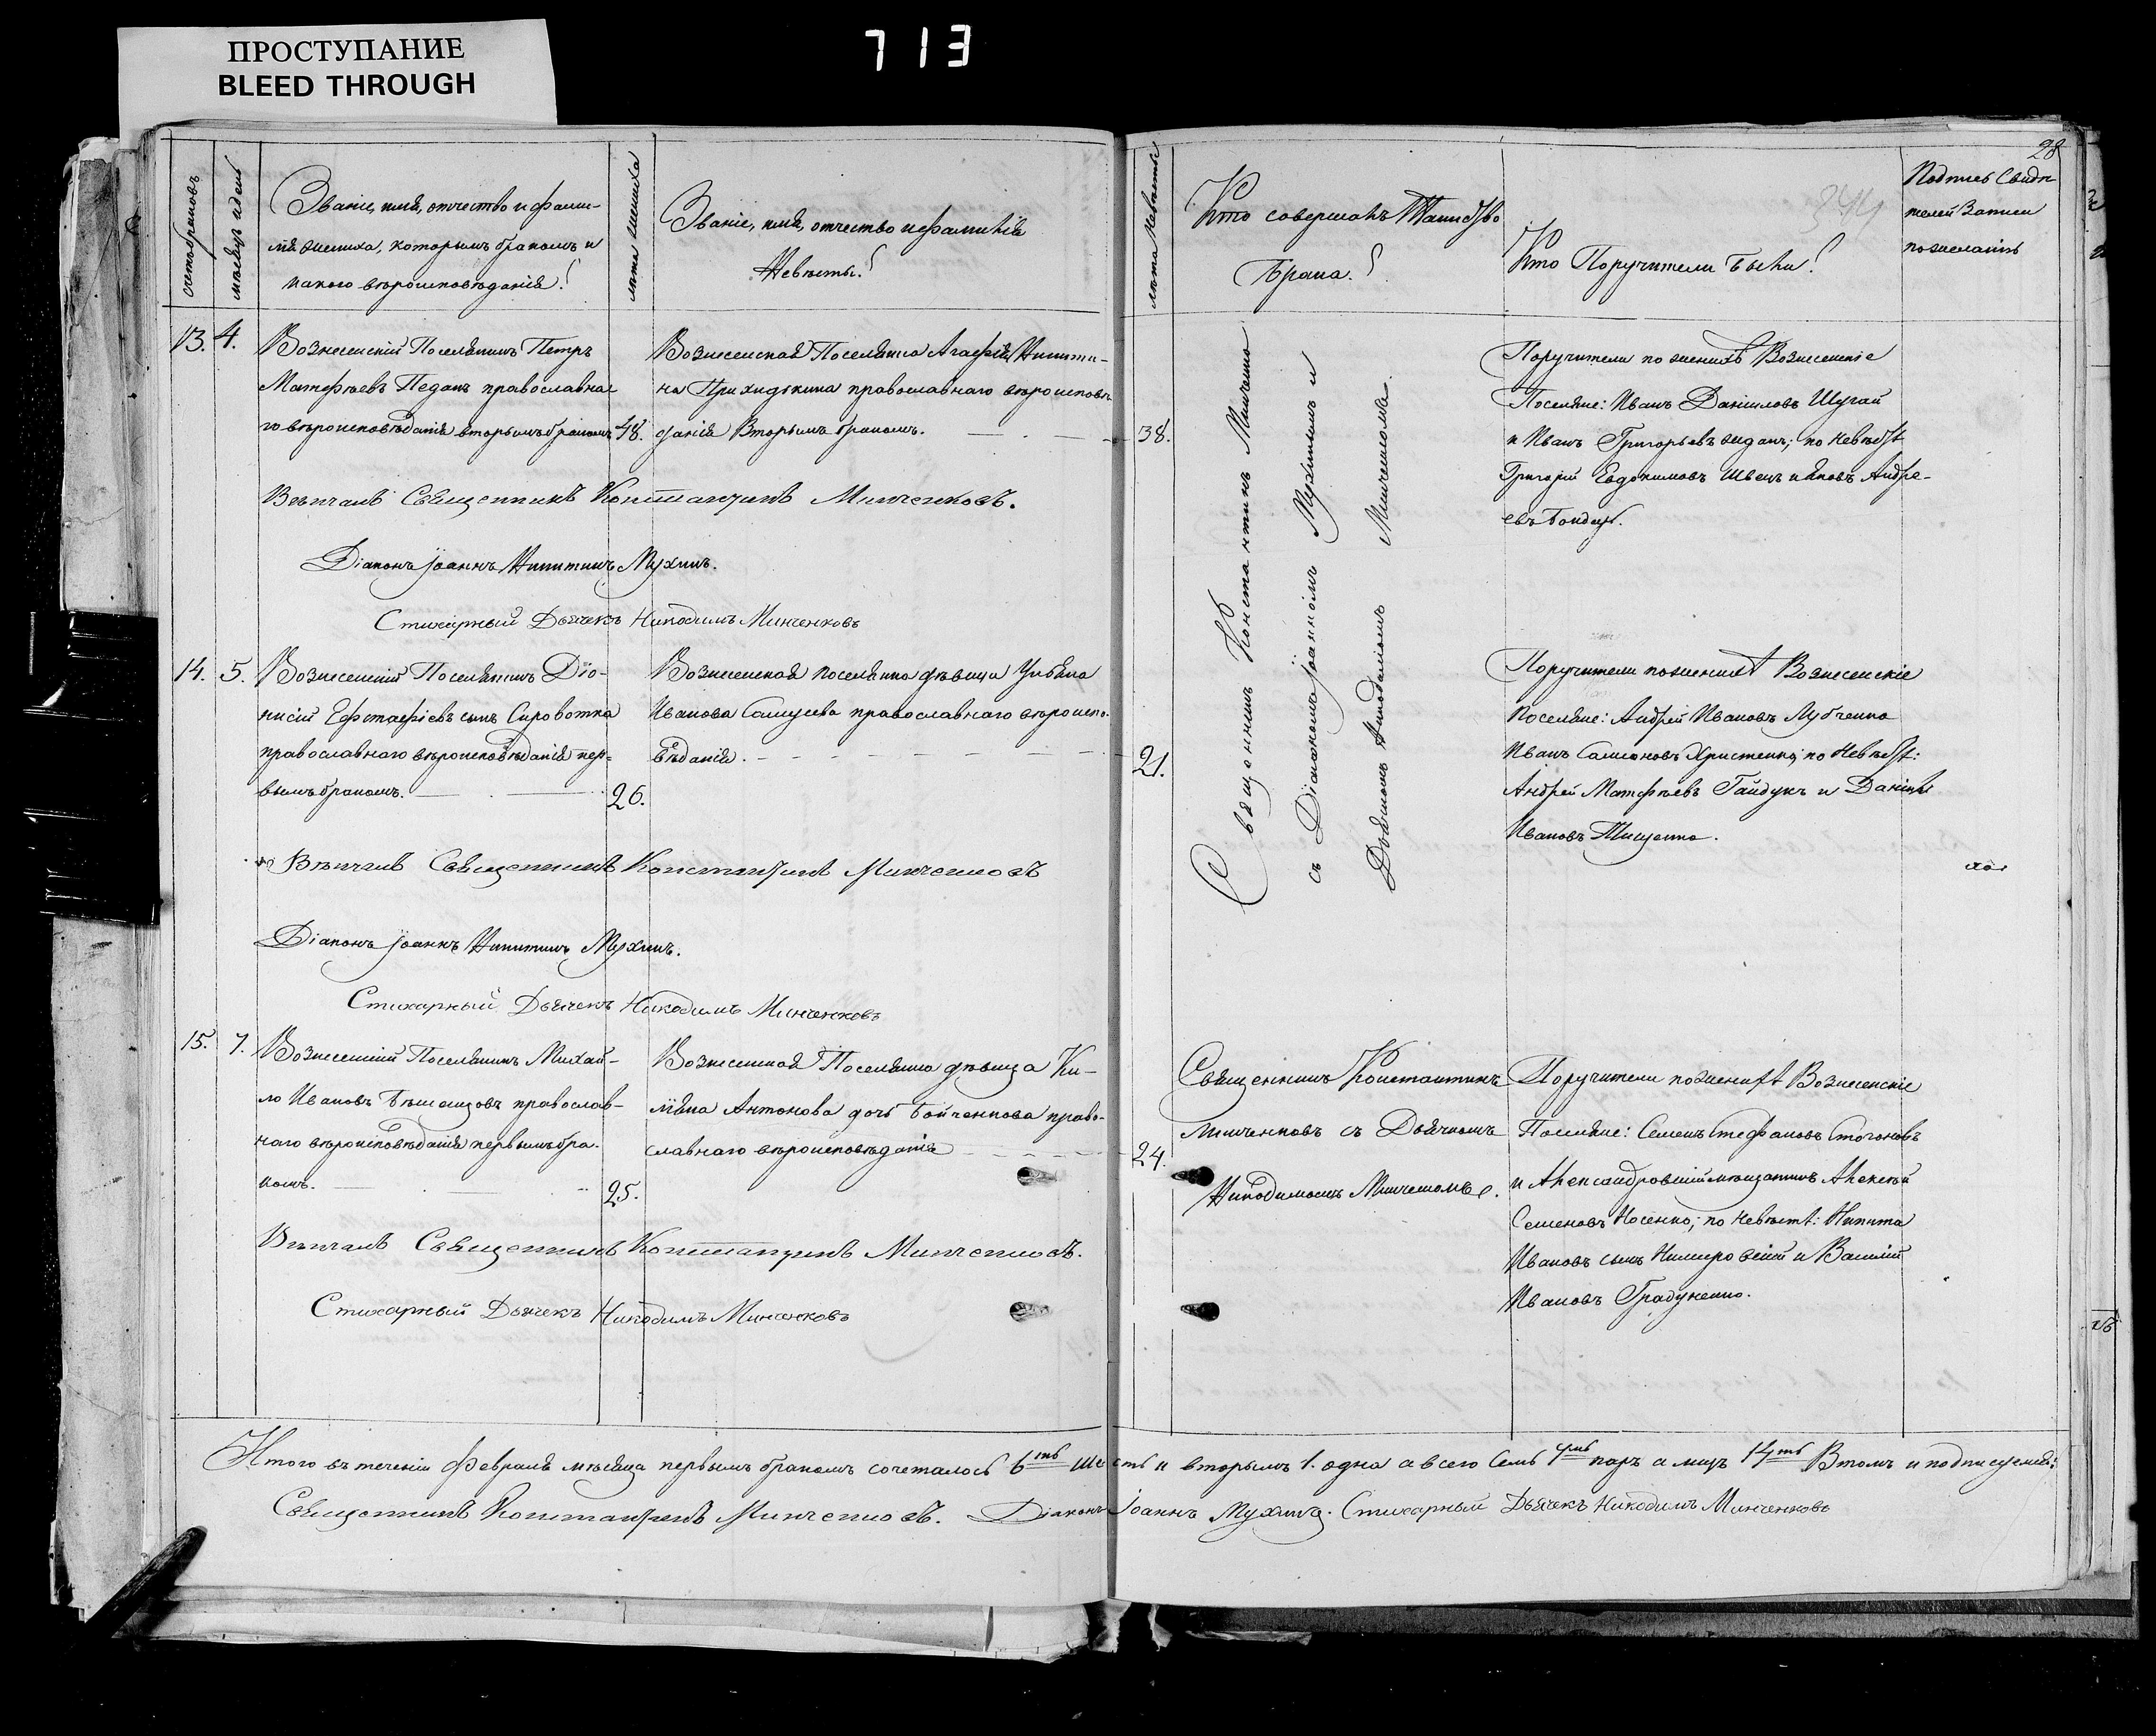 ПРОСТУПАНИЕ
BLEED THROUGH
713
28
344
счетъ браковъ
мѣсяцъ и день
Званіе, имя, отчество и фами-
лія жениха, которымъ бракомъ, и
какого вѣроисповѣданія?
лѣта жениха
Званіе, имя, отчество и фамилія
Невѣсты?
лѣта Невѣсты
Кто совершалъ Таинство
Брака?
Кто Поручители Были?
Подпись Свидѣ
телей Записи
по желанію
13. 4.
Вознесенскій Поселянинъ Петръ
Матфѣевъ Педанъ православна
го вѣроисповѣданія вторымъ бракомъ 48.
Вознесенская Поселянка Агафія Никити-
на Приходькина православнаго вѣроисповѣ
данія Вторымъ бракомъ.
38.
Священникъ Константинъ Минченко
съ Діакономъ Іоанномъ Мухинымъ и
Дьячкомъ Никодимомъ Минченкомъ.
Поручители по женихѣ Вознесенскіе
Поселяне: Иванъ Даніиловъ Шугай
и Иванъ Григорьевъ; по невѣстѣ
Григорій Евдокимовъ Швецъ и Яковъ Андре-
евъ Бондарь.
Вѣнчалъ Священникъ Константинъ Минченковъ.
Діаконъ Іоаннъ Никитинъ Мухинъ.
Стихарный Дьячекъ Никодимъ Минченковъ
14. 5.
Вознесенскій Поселянинъ Діо-
нисій Ефстафіевъ сынъ Сировотка
православнаго вѣроисповѣданія пер-
вымъ бракомъ. 26.
Вознесенская поселянка дѣвица Ульяна
Иванова Самусева православнаго вѣроиспо-
вѣданія.
21.
Поручители по женихѣ Вознесенскіе
поселяне: Андрей Ивановъ Лубченко
Иванъ Самсоновъ Христенко, по Невѣстѣ:
Андрей Матфѣевъ Гайдукъ и Даніилъ
Ивановъ Тищенко.
Вѣнчалъ Священникъ Константинъ Минченковъ
Діаконъ Іоаннъ Никитинъ Мухинъ.
Стихарный Дьячекъ Никодимъ Минченковъ
15. 7.
Вознесенскій Поселянинъ Михай-
ло Ивановъ православ-
наго вѣроисповѣданія первымъ бра-
комъ. 25.
Вознесенская Поселянка дѣвица Ки-
ліяна Антонова дочь Бойченкова право-
славнаго вѣроисповѣданія
24.
Священникъ Константинъ
Минченковъ съ Дьячкомъ
Никодимомъ Минченкомъ.
Поручители по женихѣ Вознесенскіе
Поселяне: Семенъ Стефановъ Стогоновъ
и Александровскій мѣщанинъ Алексѣй
Семеновъ Носенко; по невѣстѣ: Никита
Ивановъ сынъ и Василій
Ивановъ Градуненко.
Вѣнчалъ Священникъ Константинъ Минченковъ.
Стихарный Дьячекъ Никодимъ Минченковъ
Итого въ теченіи Февраля мѣсяца первымъ бракомъ сочеталось 6ть Шесть и вторымъ 1. одна а всего Семь 7мь паръ а лицъ 14ть Въ томъ и подписуемся:
Священникъ Константинъ Минченковъ. Діаконъ Іоаннъ Мухинъ. Стихарный Дьячекъ Никодимъ Минченковъ